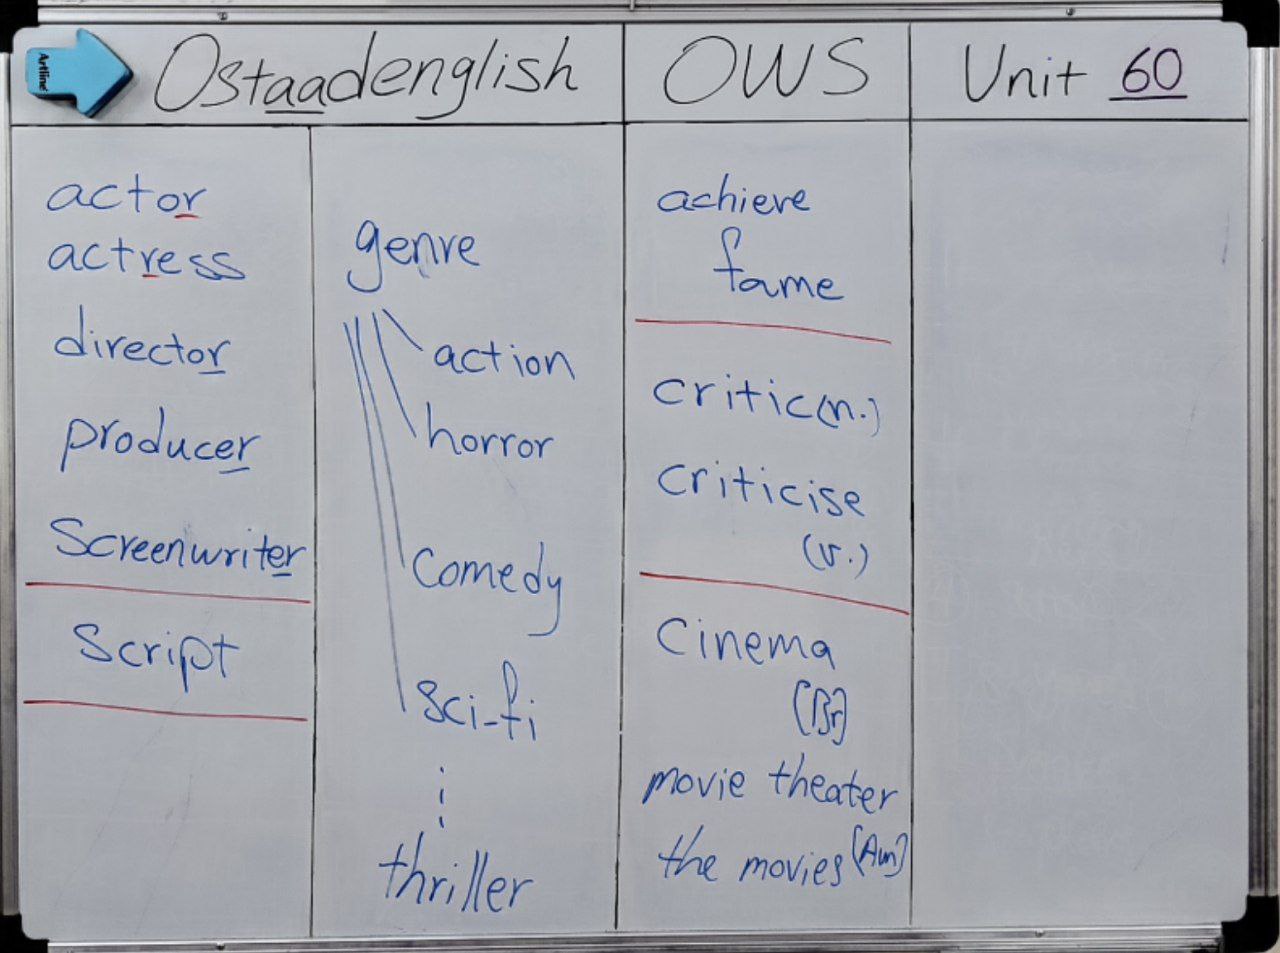 Artline
Ostaadenglish
OWS
Unit 60
actor
actress
director
producer
Screenwriter
Script
genre
action
horror
Comedy
sci-fi
thriller
achieve
fame
critic (n.)
criticise
(v.)
Cinema
(Br)
movie theater
the movies (Am)